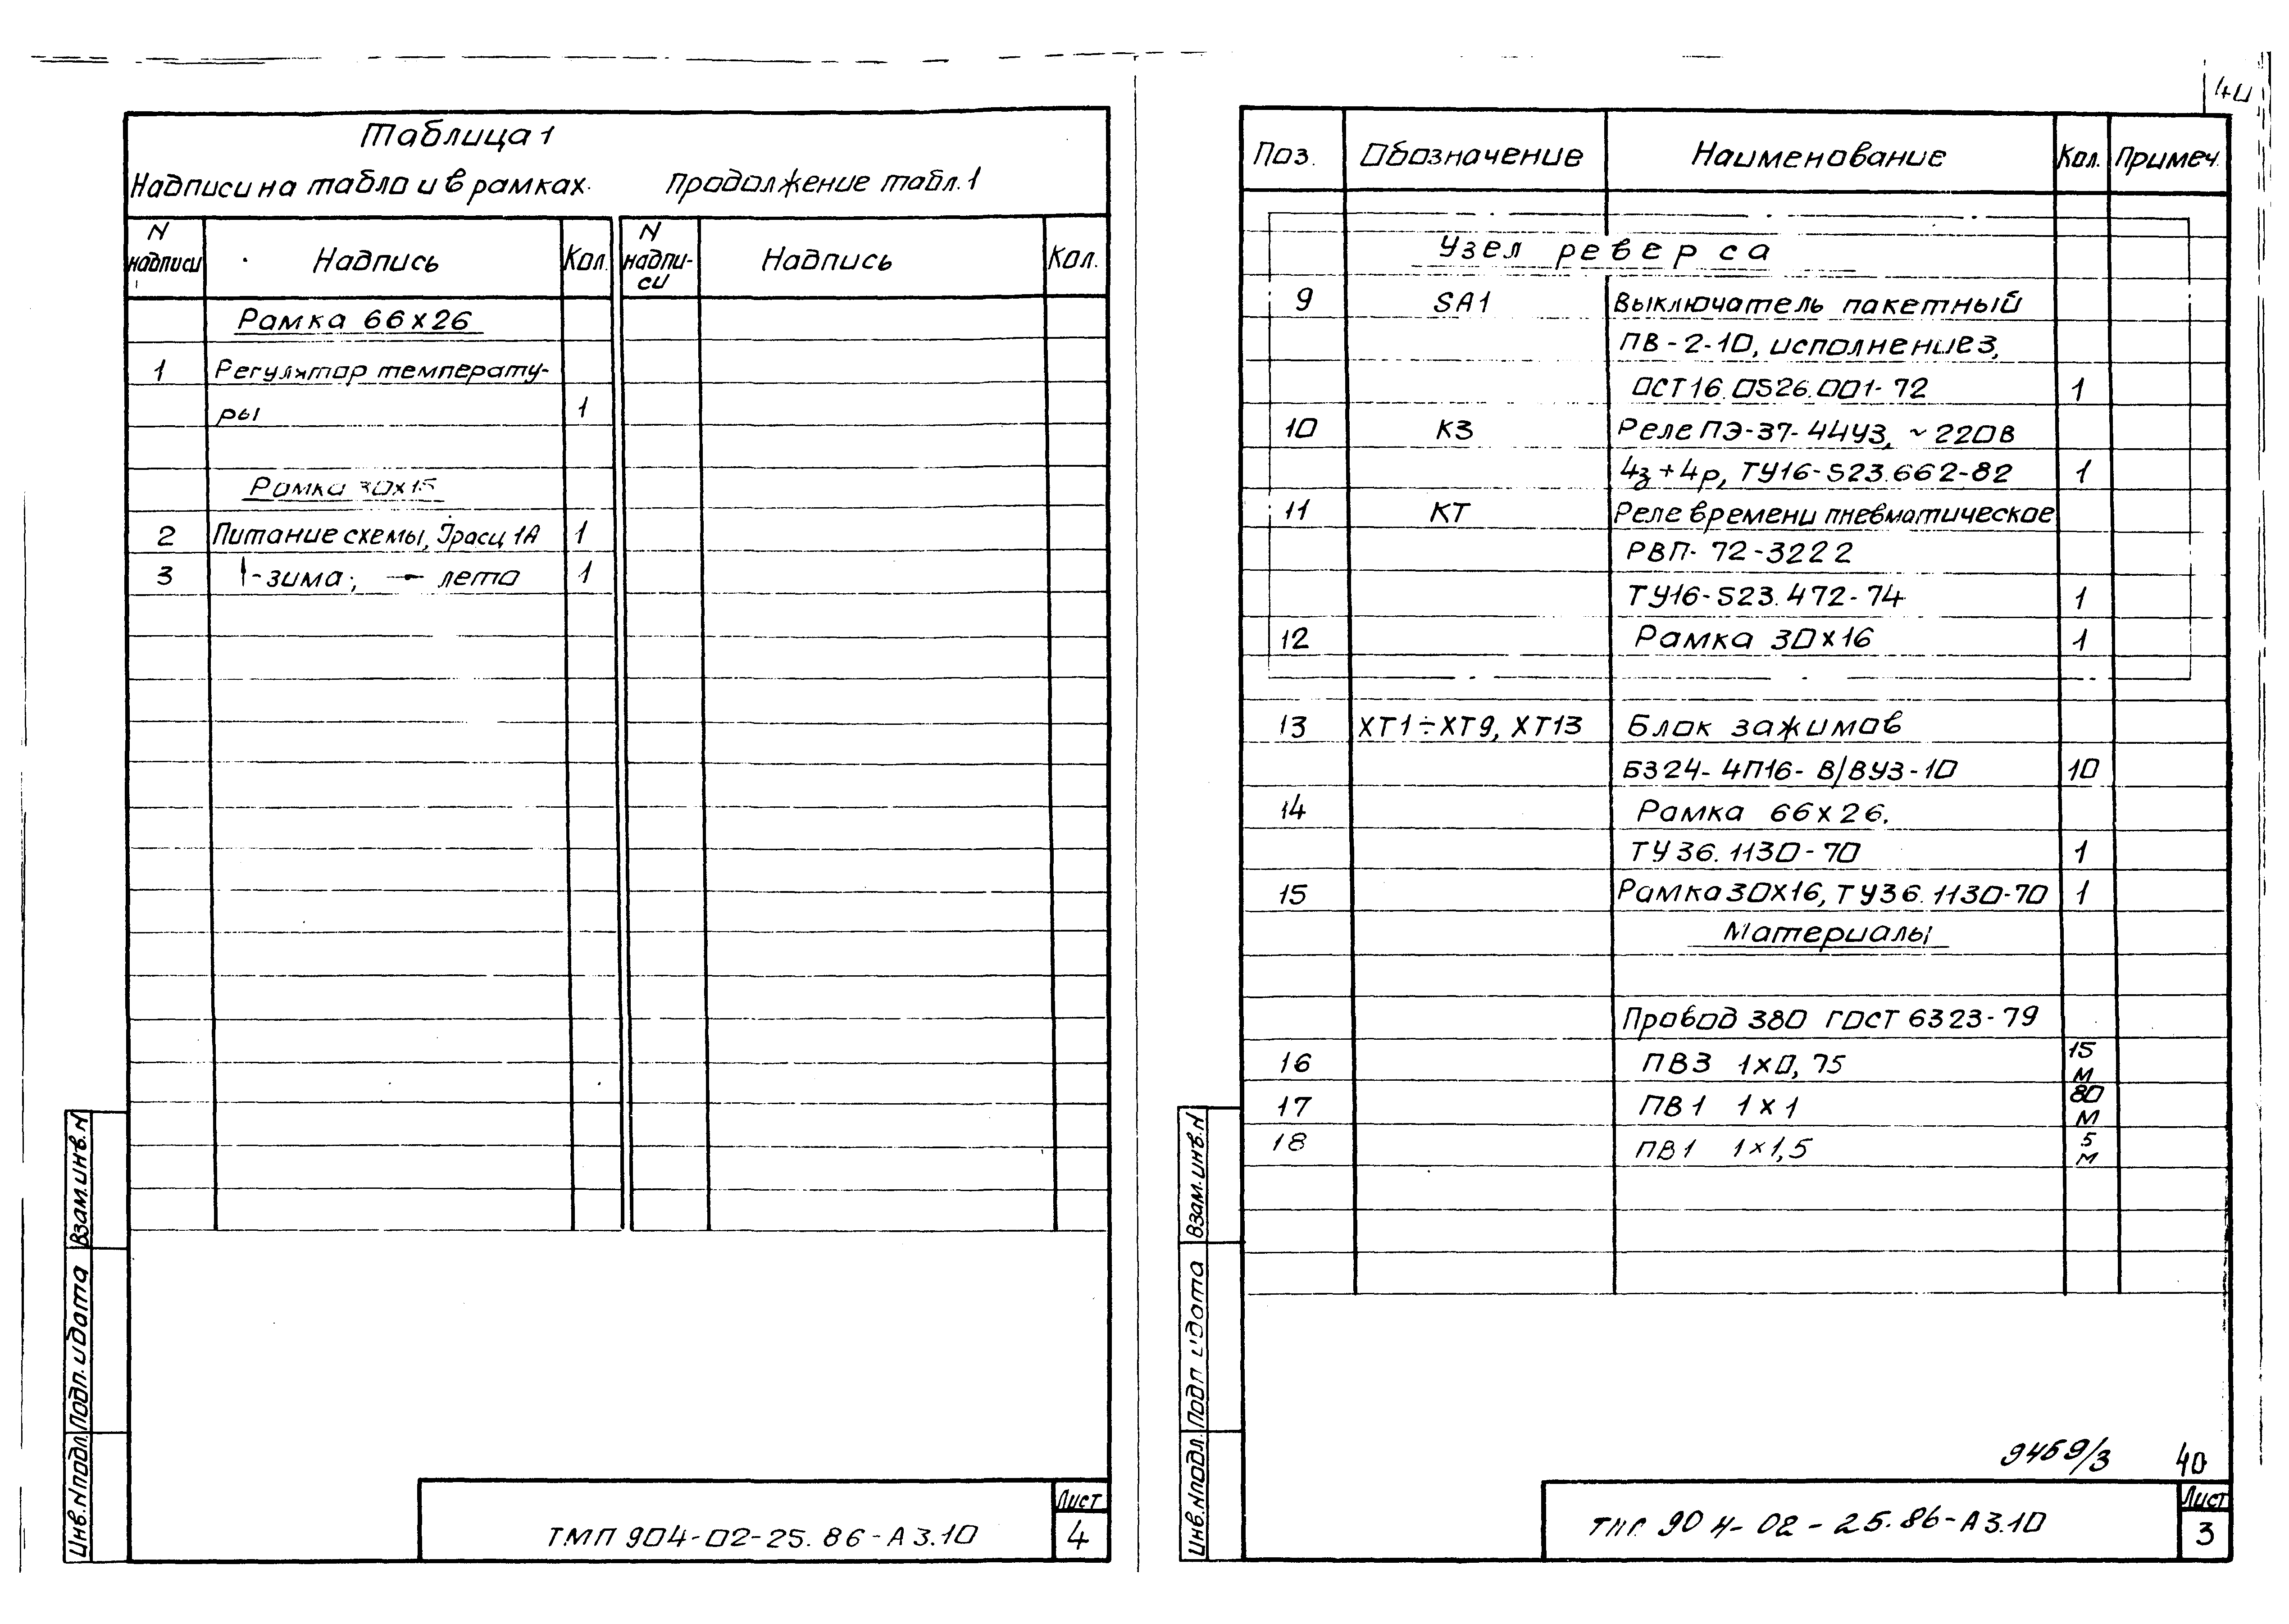 Таблица 1
Надписи на табло и в рамках.
Продолжение табл. 1
N надписи
Надпись
Кол.
N надпи-си
Надпись
Кол.
Рамка 66х26
1 Регулятор температу-
ры 1
Рамка 30х15
2 Питание схемы, Iрасц 1А 1
3 -зима; лето 1
Взам.инв.N
Подп. и дата
Инв.N подл.
ТМП 904-02-25.86-А3.10
Лист
4
40
Поз. Обозначение Наименование Кол. Примеч.
Узел реверса
9 SA1 Выключатель пакетный
ПВ-2-10, исполнение 3,
ОСТ16.0526.001-72 1
10 К3 Реле ПЭ-37-44У3, ~220В
4з+4р, ТУ16-523.662-82 1
11 КТ Реле времени пневматическое
РВП-72-3222
ТУ16-523.472-74 1
12 Рамка 30х16 1
13 ХТ1÷ХТ9, ХТ13 Блок зажимов
БЗ24-4П16-В/ВУЗ-10 10
14 Рамка 66х26.
ТУ36.1130-70 1
15 Рамка 30х16, ТУ36.1130-70 1
Материалы
Провод 380 ГОСТ 6323-79
16 ПВ3 1х0,75 15 м
17 ПВ1 1х1 80 м
18 ПВ1 1х1,5 5 м
Взам.инв.N
Подп и дата
Инв.N подл.
9459/3 40
904-02-25.86-А3.10
Лист
3